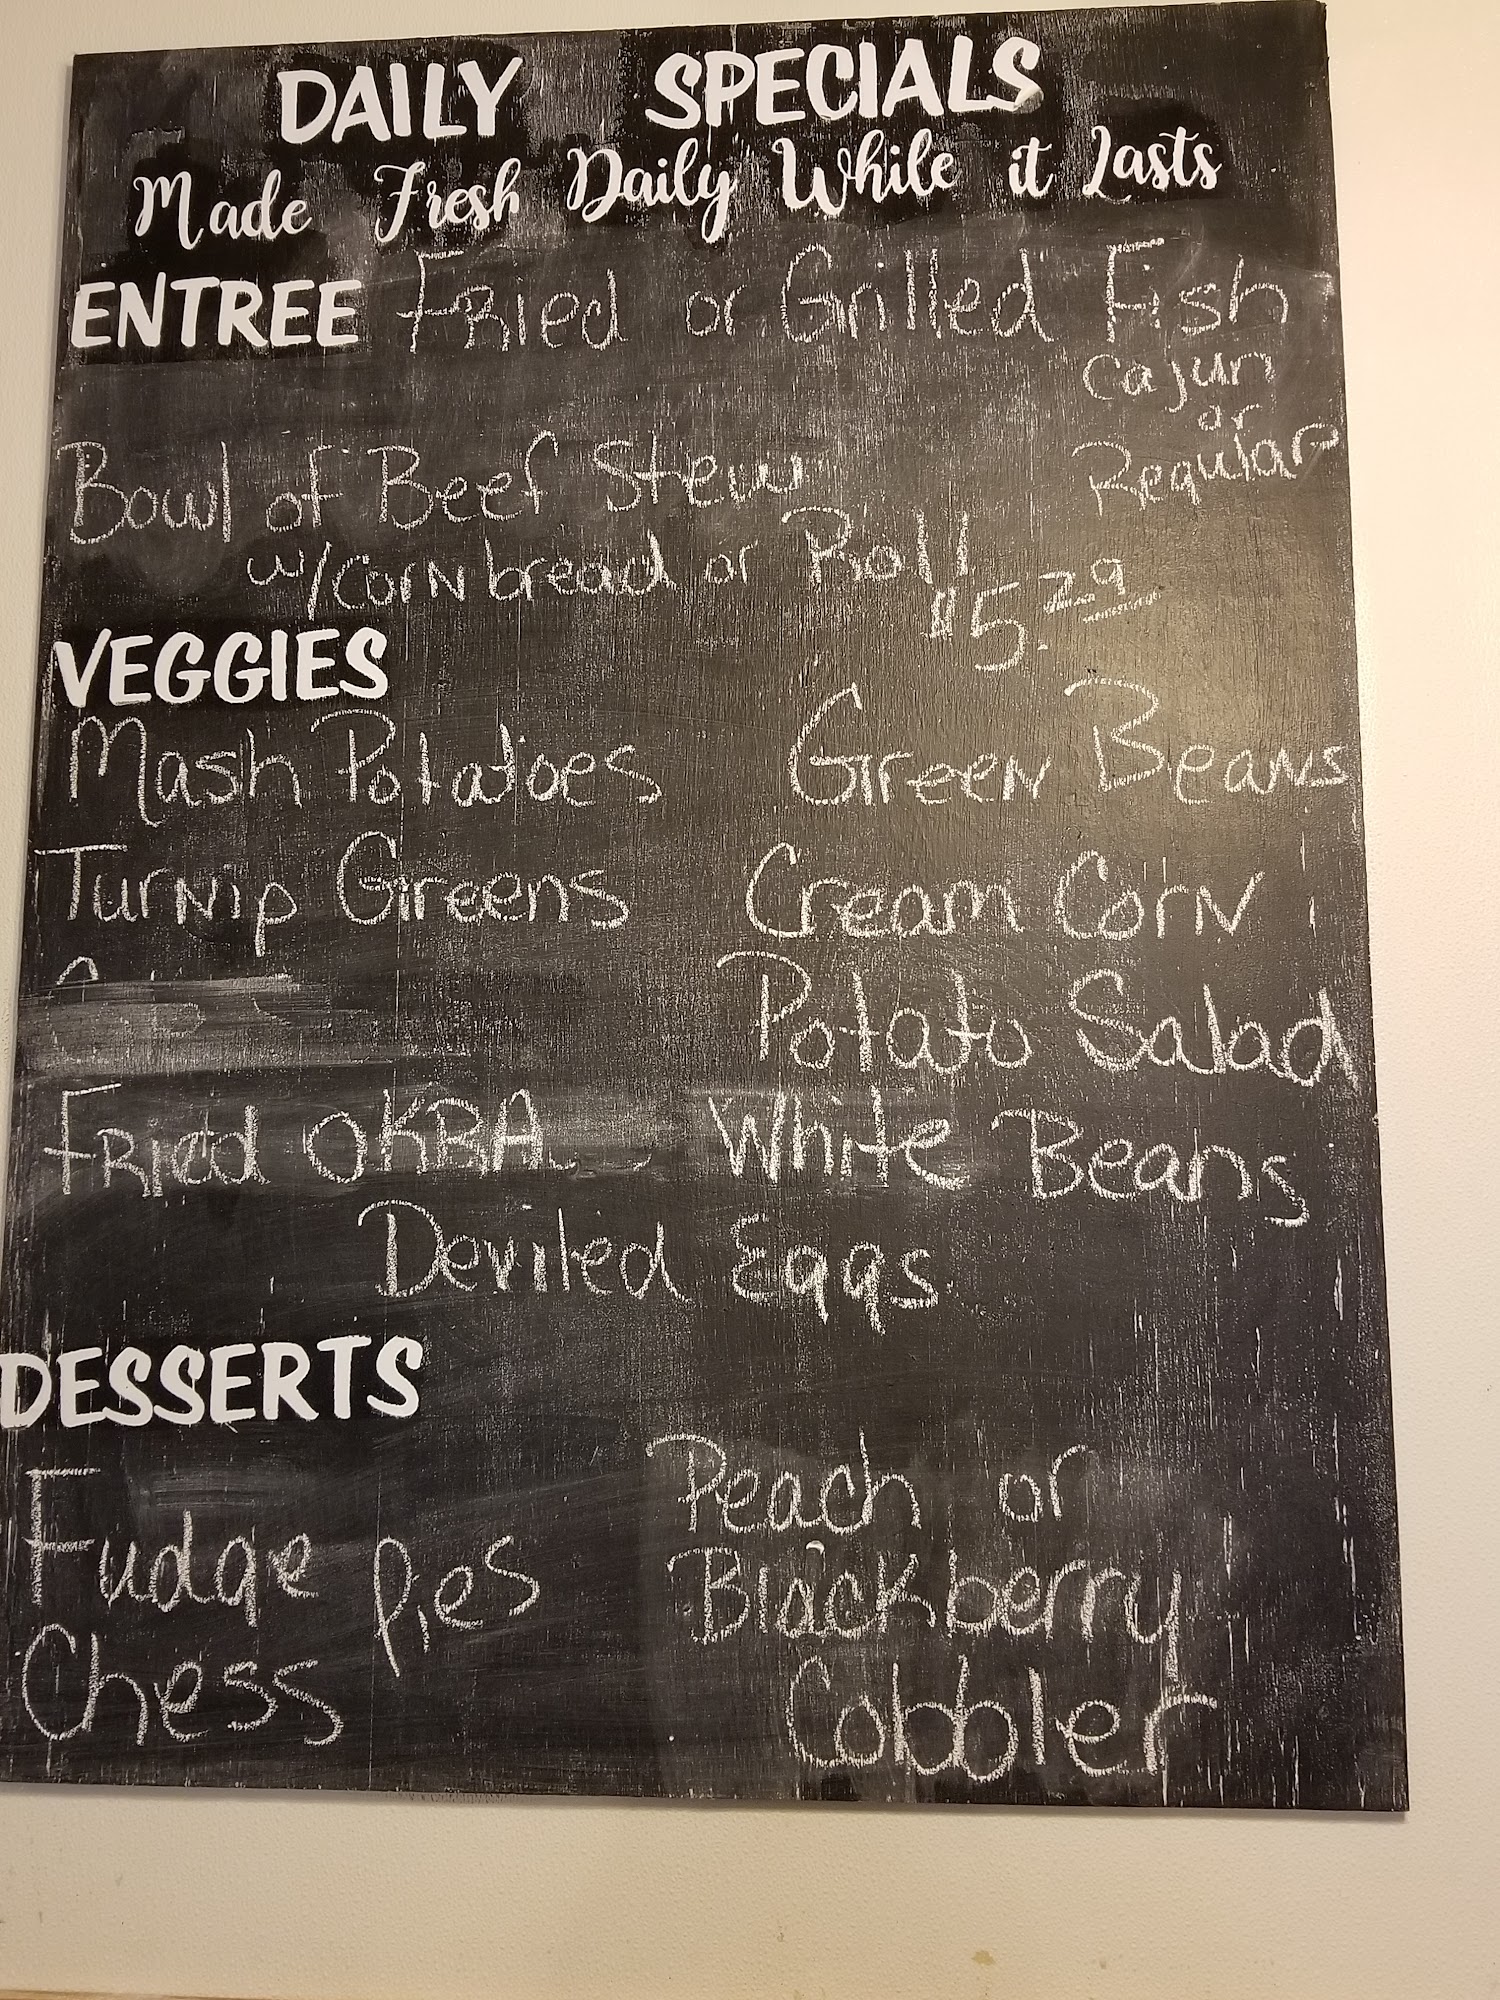 DAILY SPECIALS
Made Fresh Daily While it Lasts
ENTREE Fried or Grilled Fish
Cajun
or
Regular
Bowl of Beef Stew
w/cornbread or Roll
$5.29
VEGGIES
Mash Potatoes Green Beans
Turnip Greens Cream Corn
Potato Salad
Fried OKRA White Beans
Deviled Eggs
DESSERTS
Fudge Pies
Chess
Peach or
Blackberry
Cobbler